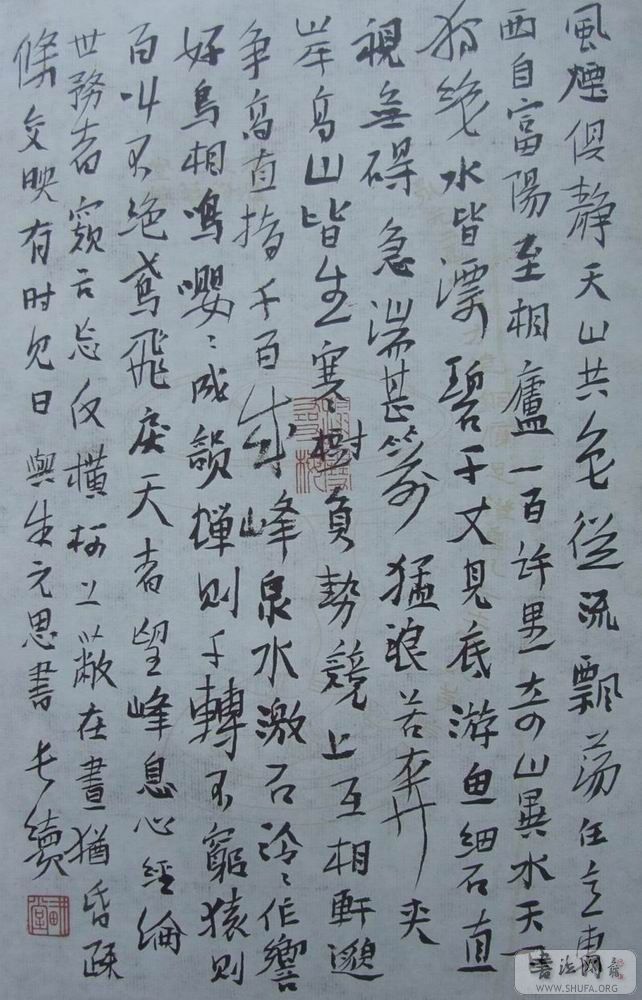 風煙俱靜天山共色從流飄蕩任意東
西自富陽至桐廬一百許里奇山異水天下
獨絕水皆漂碧千丈見底游魚細石直
視無碍急湍甚箭猛浪若奔夾
岸高山皆生寒樹負勢競上互相軒邈
争高直指千百成峰泉水激石泠〻作響
好鳥相鳴嚶〻成韻蟬則千轉不窮猿則
百叫不絕鳶飛戾天者望峰息心經綸
世務者窺谷忘反橫柯上蔽在晝猶昏疎
條交映有时見日 與朱元思書
書法网
WWW.SHUFA.ORG